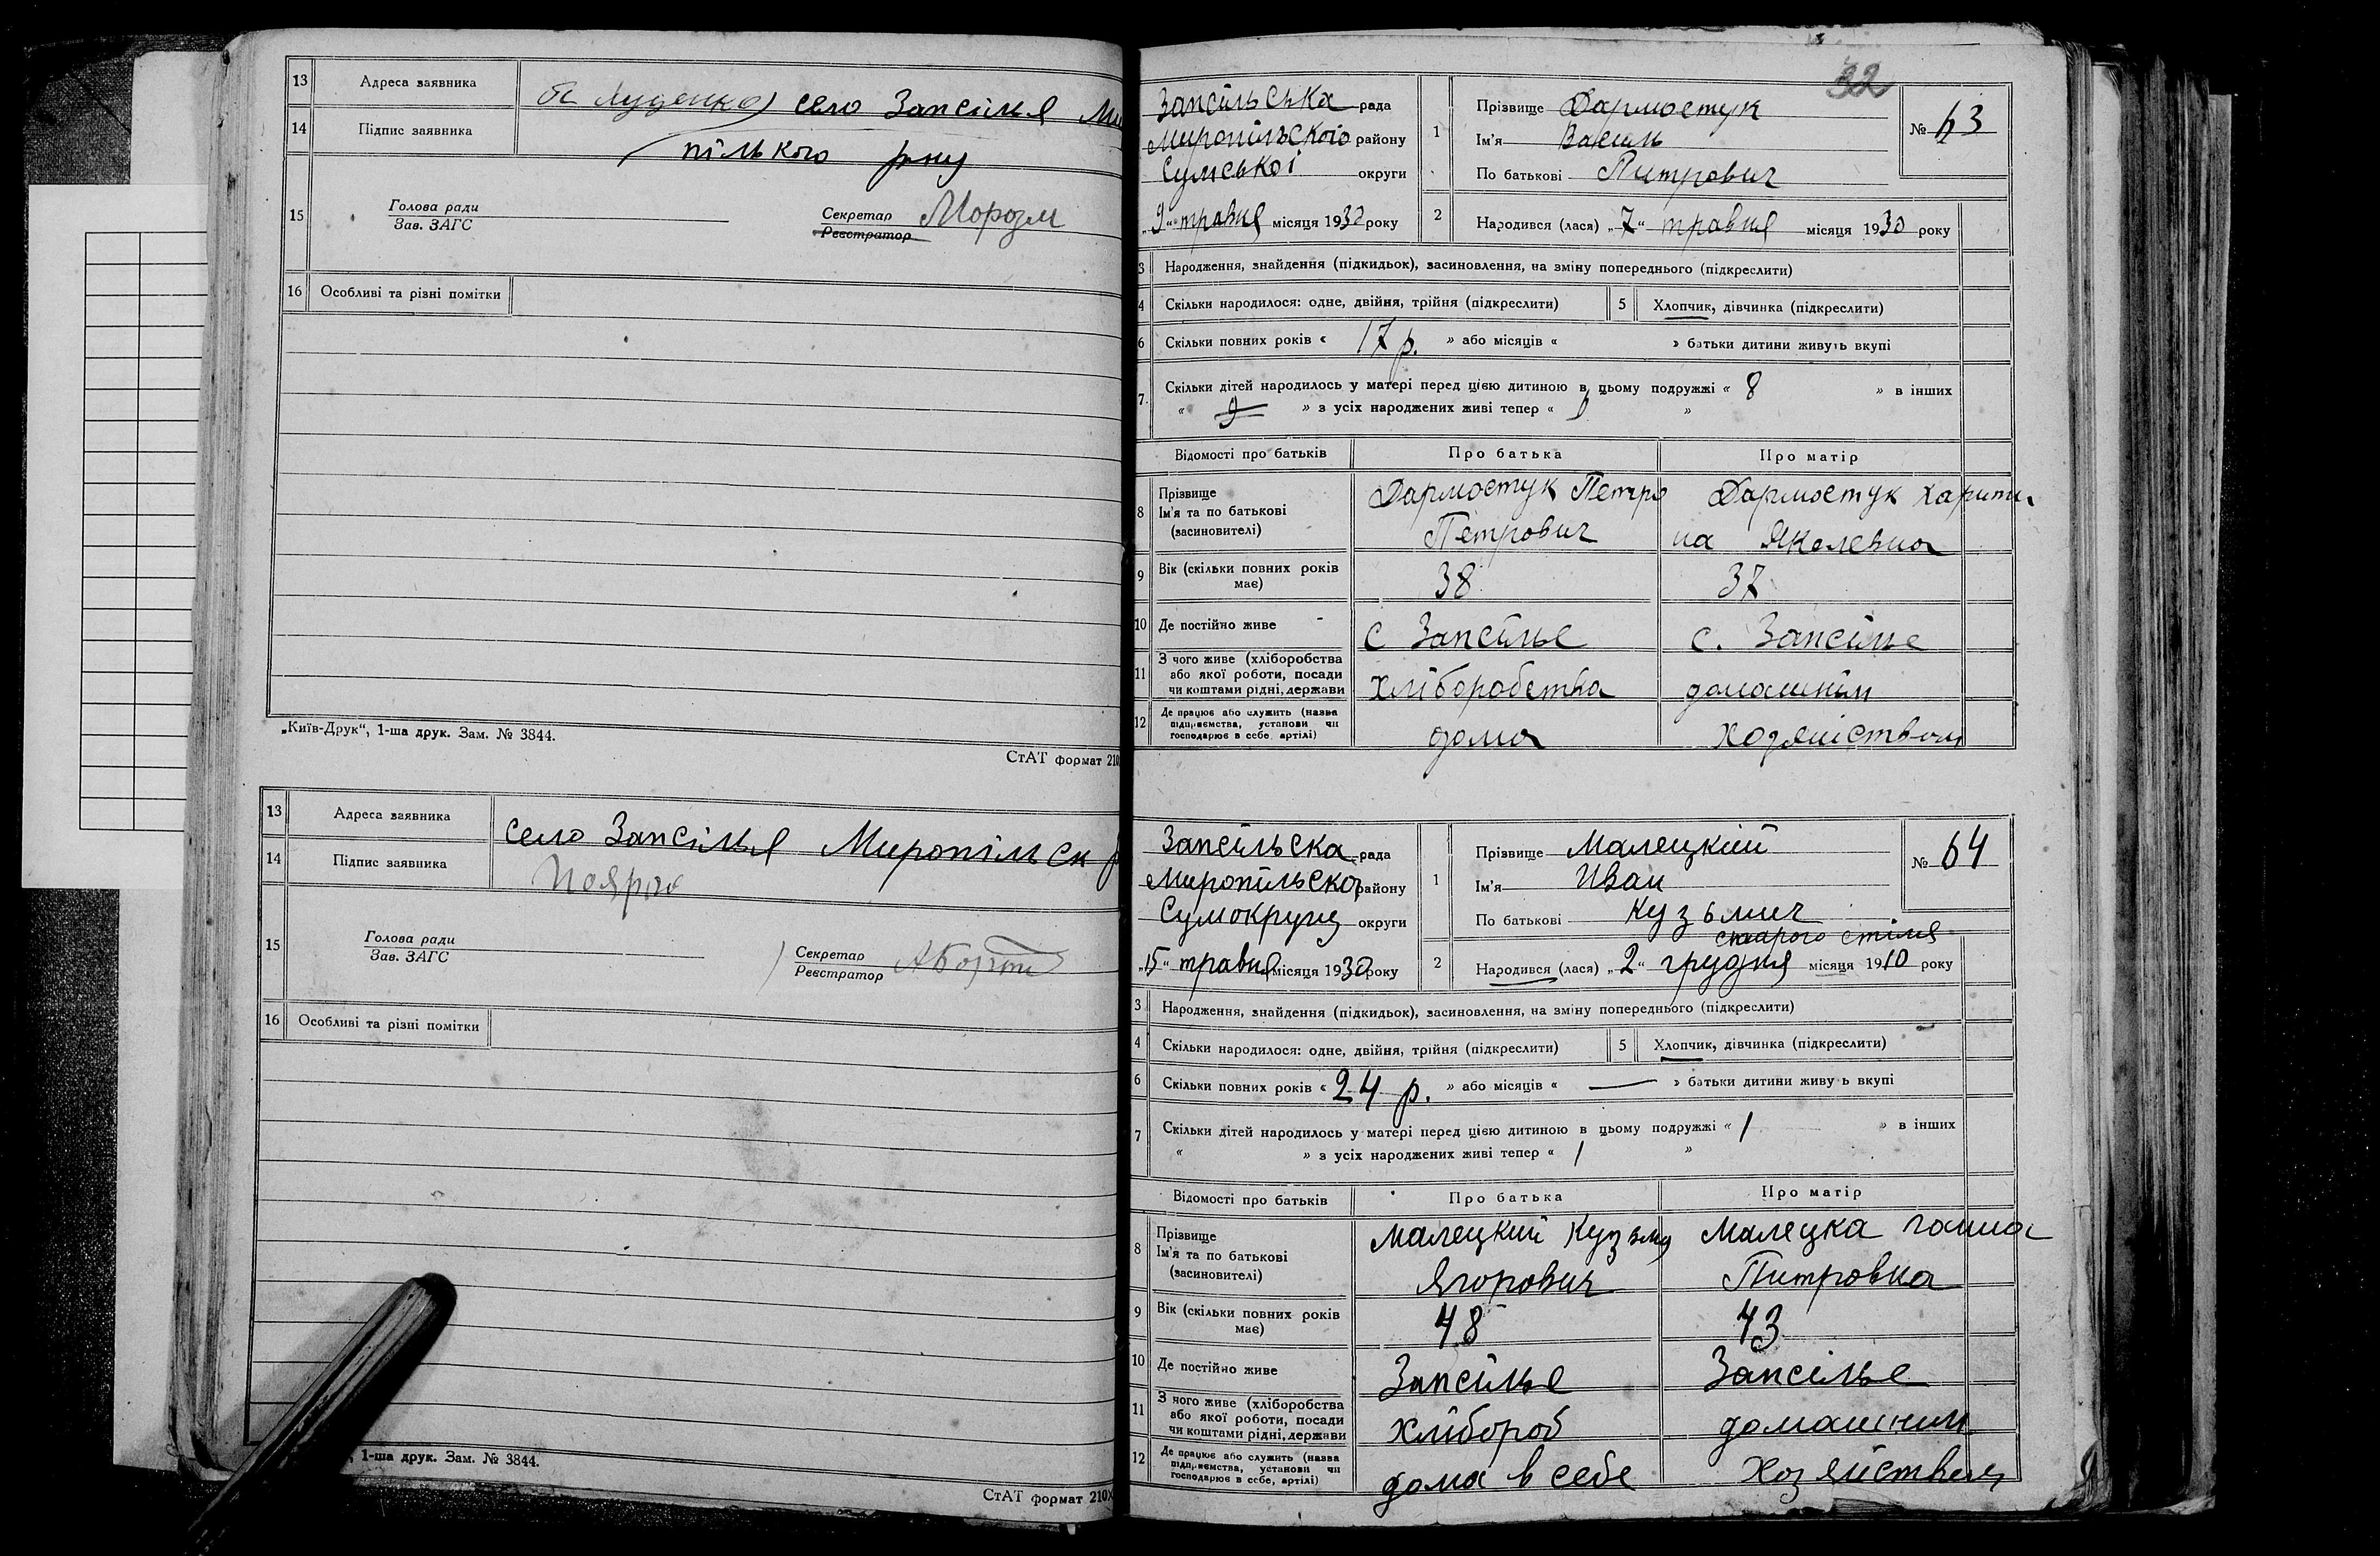 13 Адреса заявника
село Запсілья Ми
14 Підпис заявника
пілького р-ну
15 Голова ради
Зав. ЗАГС
Секретар
Реєстратор
16 Особливі та різні помітки
„Київ-Друк“, 1-ша друк. Зам. № 3844.
СтАТ формат 210
13 Адреса заявника
село Запсілья Миропільск р
14 Підпис заявника
15 Голова ради
Зав. ЗАГС
Секретар
Реєстратор
16 Особливі та різні помітки
, 1-ша друк. Зам. № 3844.
СтАТ формат 210х
32
Запсільська рада
Миропільского району
Сумської округи
„9“ травня місяця 1930 року
1 Прізвище Дармостук
Ім'я Василь
По батькові Питрович
№ 63
2 Народився (лася) „7“ травня місяця 1930 року
3 Народження, знайдення (підкидьок), засиновлення, на зміну попереднього (підкреслити)
4 Скільки народилося: одне, двійня, трійня (підкреслити) 5 Хлопчик, дівчинка (підкреслити)
6 Скільки повних років « 17 р. » або місяців « » батьки дитини живуть вкупі
7. Скільки дітей народилось у матері перед цією дитиною в цьому подружжі « 8 » в інших
« » з усіх народжених живі тепер « »
Відомості про батьків Про батька Про матір
8 Прізвище
Ім'я та по батькові
(засиновителі)
Дармостук Петро
Петрович
Дармостук Харити
на Яколевна
9 Вік (скільки повних років
має)
38 37
10 Де постійно живе с Запсілье с. Запсілье
11 З чого живе (хліборобства
або якої роботи, посади
чи коштами рідні, держави
хліборобства домашнім
12 Де працює або служить (назва
підприємства, установи чи
господарює в себе, артілі)
дома хозяйством
Запсільска рада
Миропільског району
Сумокруги округи
„15“ травня місяця 1930 року
1 Прізвище Малецкий
Ім'я Иван
По батькові Кузьмич
№ 64
старого стіля
2 Народився (лася) „2“ грудня місяця 1910 року
3 Народження, знайдення (підкидьок), засиновлення, на зміну попереднього (підкреслити)
4 Скільки народилося: одне, двійня, трійня (підкреслити) 5 Хлопчик, дівчинка (підкреслити)
6 Скільки повних років « 24 р. » або місяців « — » батьки дитини живу ь вкупі
7 Скільки дітей народилось у матері перед цією дитиною в цьому подружжі « 1 » в інших
« » з усіх народжених живі тепер « 1 »
Відомості про батьків Про батька Про матір
8 Прізвище
Ім'я та по батькові
(засиновителі)
Малецкий Кузьма
Ягорович
Малецка Ганна
Питровка
9 Вік (скільки повних років
має)
48 43
10 Де постійно живе Запсілье Запсілье
11 З чого живе (хліборобства
або якої роботи, посади
чи коштами рідні, держави
хлібороб домашним
12 Де працює або служить (назва
підприємства, установи чи
господарює в себе, артілі)
дома в себе Хозяйством